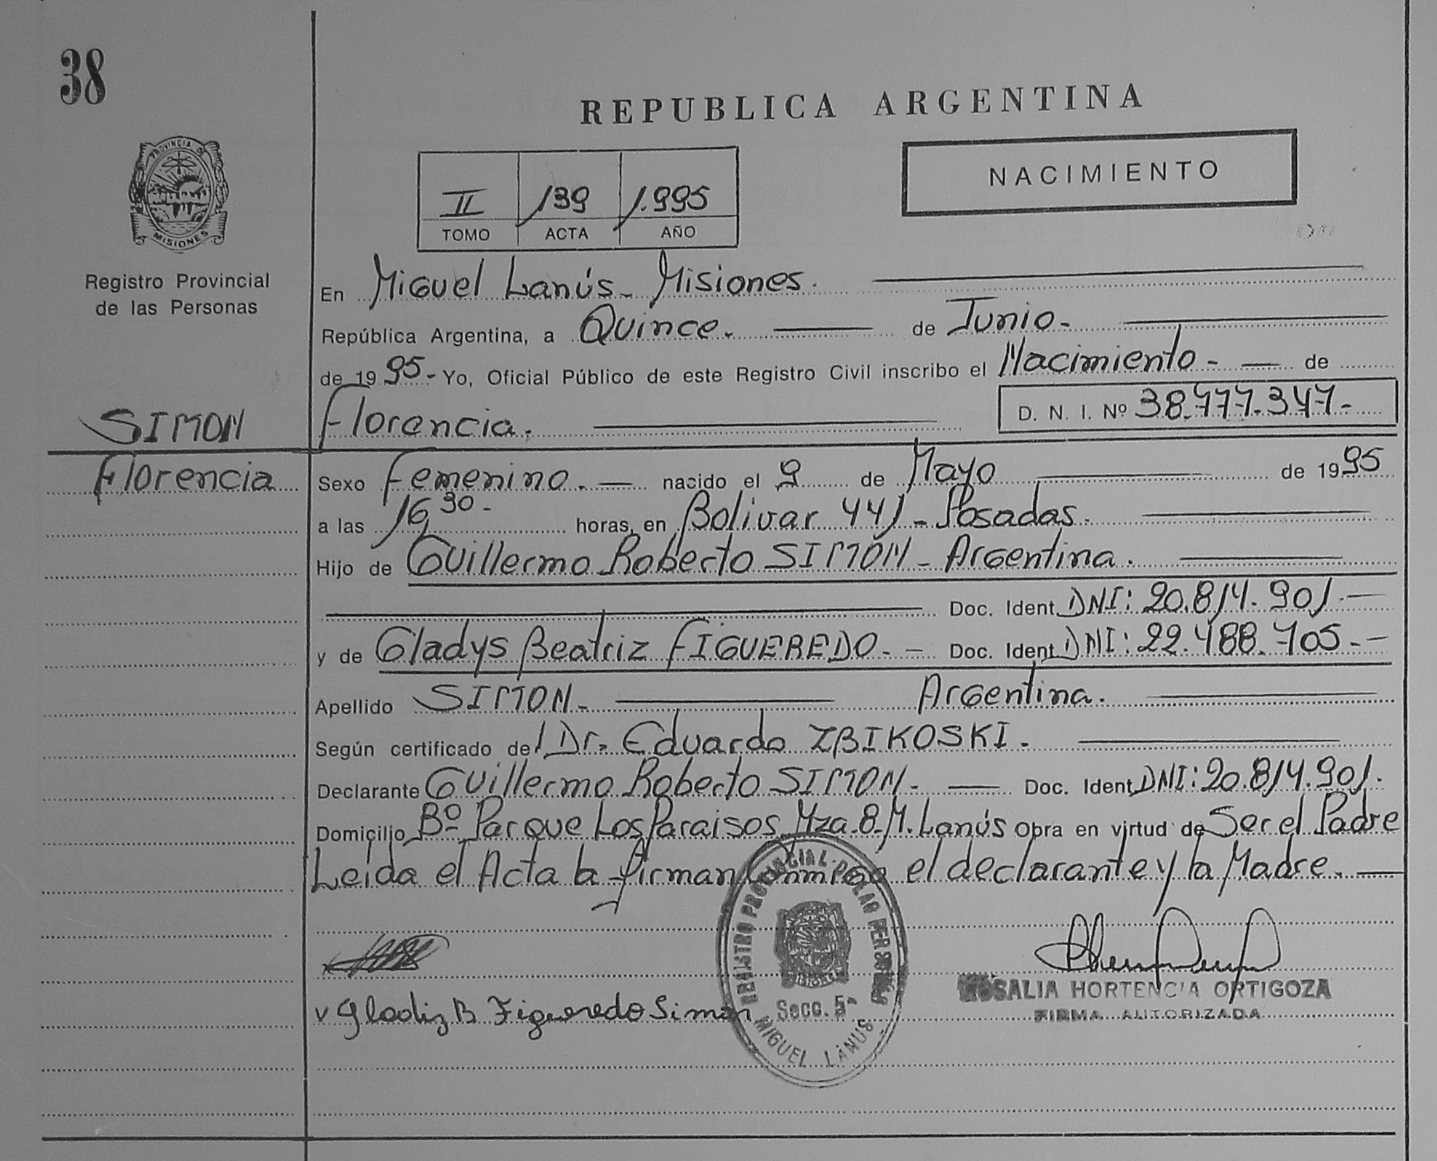 38
REPUBLICA ARGENTINA
PROVINCIA DE
MISIONES
Registro Provincial
de las Personas
II 139 1.995
TOMO ACTA AÑO
NACIMIENTO
En Miguel Lanús - Misiones.
República Argentina, a Quince. de Junio.
de 1995 - Yo, Oficial Público de este Registro Civil inscribo el Nacimiento - de
SIMON
Florencia. D. N. I. Nº 38.777.347.-
Florencia
Sexo Femenino. - nacido el 9 de Mayo de 1995
a las 16,30 - horas, en Bolivar 441 - Posadas.
Hijo de Guillermo Roberto SIMON - Argentina.
Doc. Ident. DNI: 20.814.901.-
y de Gladys Beatriz FIGUEREDO. - Doc. Ident. DNI: 22.488.705.-
Apellido SIMON - Argentina.
Según certificado del Dr. Eduardo ZBIKOSKI.
Declarante Guillermo Roberto SIMON. - Doc. Ident. DNI: 20.814.901.
Domicilio Bº Parque Los Paraisos Mza. 8. M. Lanús Obra en virtud de Ser el Padre
Leida el Acta la firman Conmigo el declarante y la Madre. -
REGISTRO PROVINCIAL DE LAS PERSONAS
MISIONES
Secc. 5ª
MIGUEL LANUS
ROSALIA HORTENCIA ORTIGOZA
FIRMA AUTORIZADA
Gladiz B Figueredo Simon